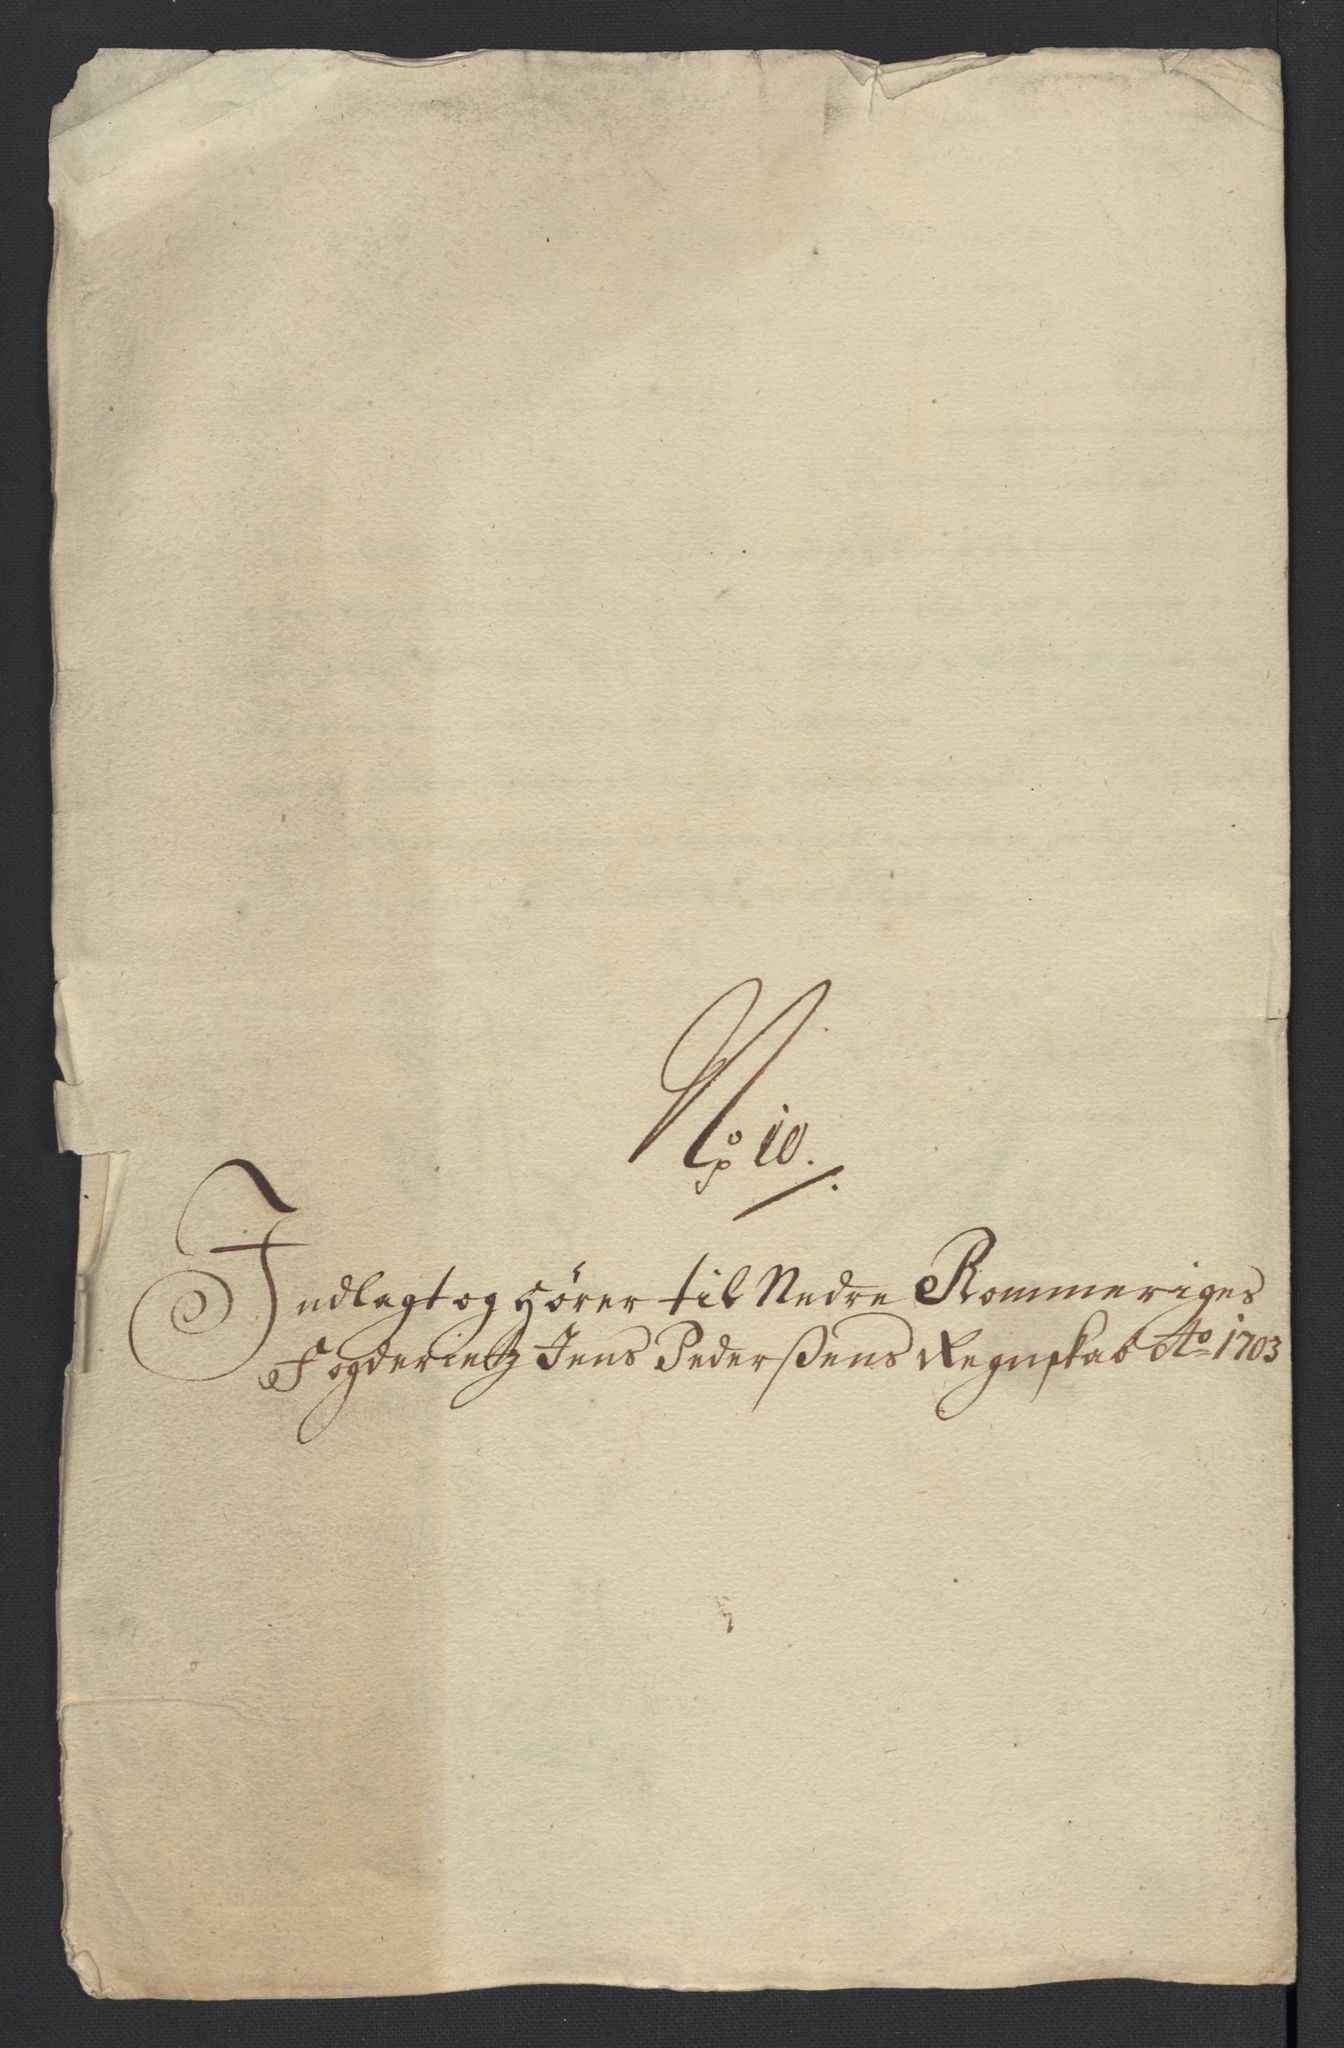 No 10.
Indlagt og hører til Nedre Rommeriges
Fogderietz Jens Pederßens Regnskab Ao 1703